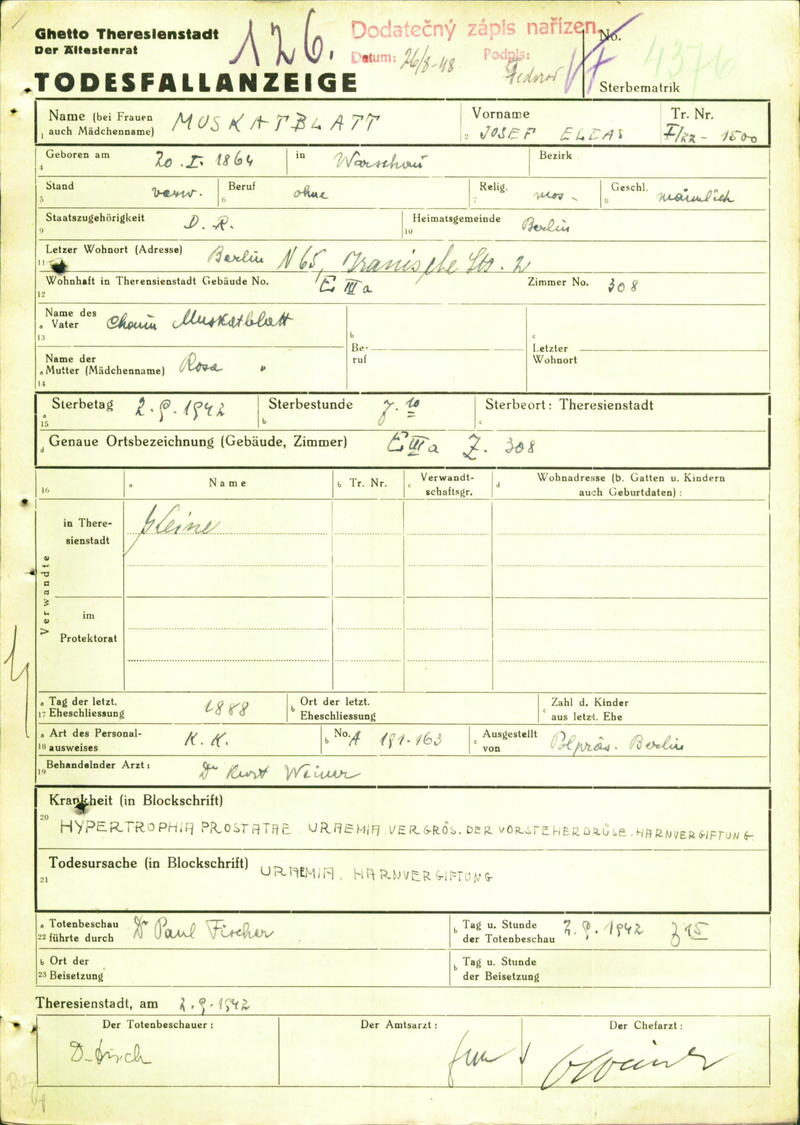 Ghetto Theresienstadt
Der Ältestenrat
126.
Dodatečný zápis nařízen
Datum: 26/8-48 Podpis:
No.
4376
TODESFALLANZEIGE
Sterbematrik
Name (bei Frauen auch Mädchenname) MUSKATBLATT
Vorname JOSEF ELIAS
Tr. Nr. I/22 - 1500
Geboren am 20. I. 1864 in Warschau Bezirk
Stand verw. Beruf ohne Relig. mos. Geschl. männlich
Staatszugehörigkeit D. R. Heimatsgemeinde Berlin
Letzer Wohnort (Adresse) Berlin N 65, Iranische Str. 2
Wohnhaft in Theresienstadt Gebäude No. E III a Zimmer No. 308
Name des Vater Chaim Muskatblatt
Name der Mutter (Mädchenname) Rosa "
Beruf
Letzter Wohnort
Sterbetag 2. 9. 1942 Sterbestunde 7.10 Sterbeort: Theresienstadt
Genaue Ortsbezeichnung (Gebäude, Zimmer) E III a Z. 308
Name Tr. Nr. Verwandtschaftsgr. Wohnadresse (b. Gatten u. Kindern auch Geburtdaten):
Verwandte
in Theresienstadt
im Protektorat
Tag der letzt. Eheschliessung 1888 Ort der letzt. Eheschliessung Zahl d. Kinder aus letzt. Ehe
Art des Personalausweises K. K. No. A 191-163 Ausgestellt von Polpräs. Berlin
Behandelnder Arzt: Dr Kurt Weiner
Krankheit (in Blockschrift)
HYPERTROPHIA PROSTATAE URAEMIA. VERGRÖS. DER VORSTEHERDRÜSE. HARNVERGIFTUNG
Todesursache (in Blockschrift) URAEMIA. HARNVERGIFTUNG
Totenbeschau führte durch Dr Paul Fischer Tag u. Stunde der Totenbeschau 2. 9. 1942
Ort der Beisetzung Tag u. Stunde der Beisetzung
Theresienstadt, am 2.9.1942
Der Totenbeschauer: Der Amtsarzt: Der Chefarzt: